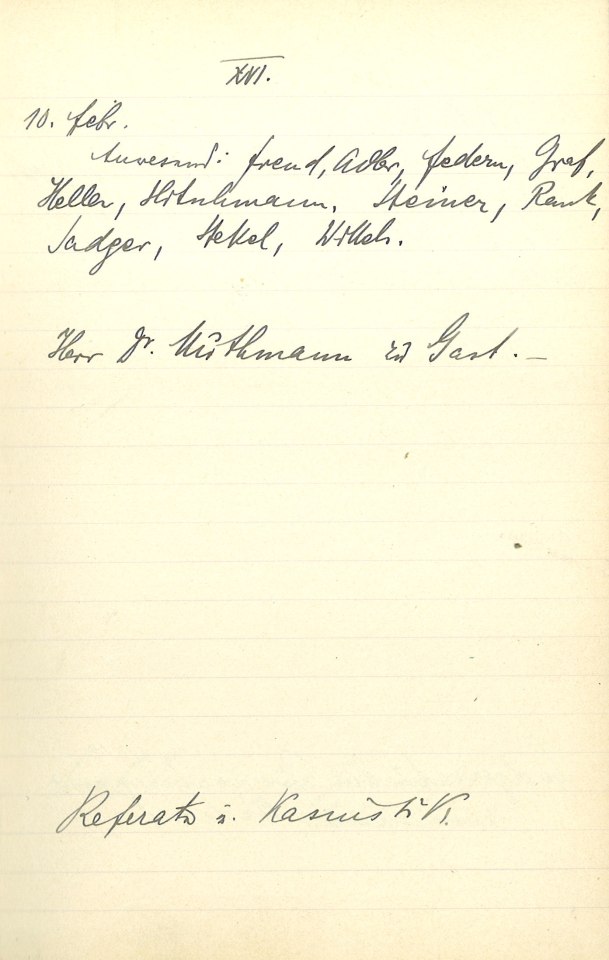 XVI.
10. Febr.
Anwesend: Freud, Adler, Federn, Graf,
Heller, Hitschmann, Steiner, Rank,
Sadger, Stekel, Wittels.
Herr Dr. Muthmann zu Gast. —
Referate u. Kasuistik.